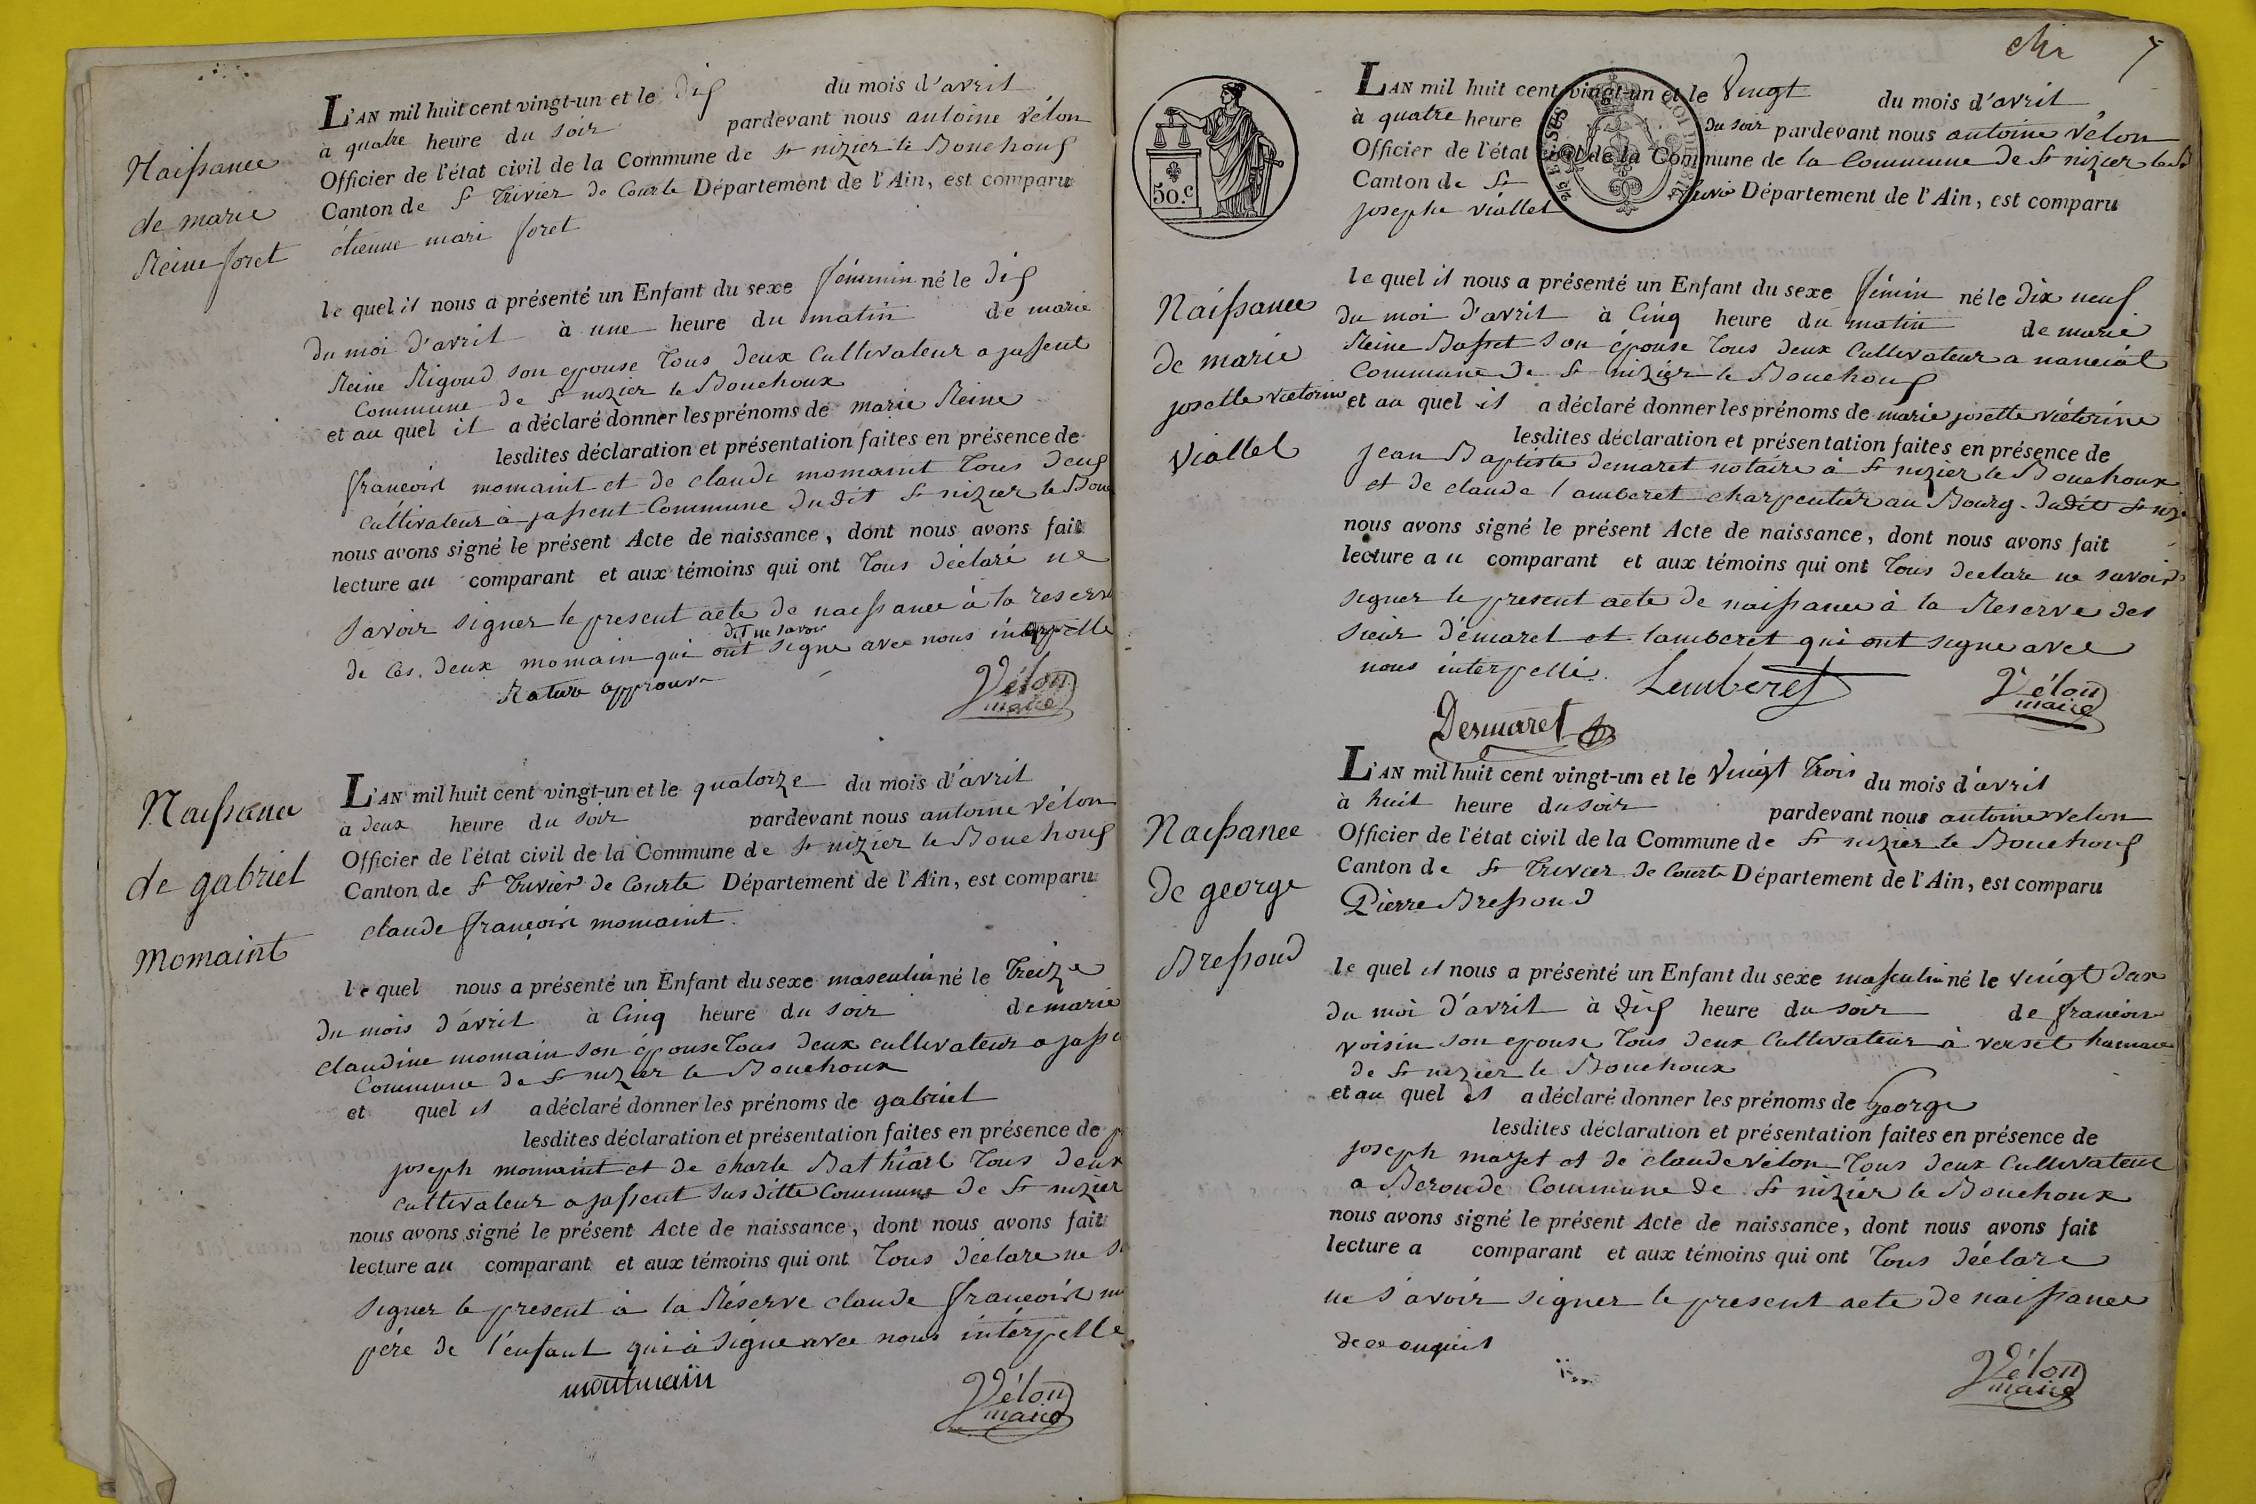 L'AN mil huit cent vingt-un et le dix du mois d'avril
à quatre heure du soir pardevant nous antoine vélon
Officier de l'état civil de la Commune de St nizier le Bouchoux
Canton de St trivier de Courte Département de l'Ain, est comparu
étienne mari foret
Naissance
de marie
Reine foret
le quel il nous a présenté un Enfant du sexe féminin né le dix
du moi d'avril à une heure du matin de marie
Reine Rigoud son epouse tous deux Cultivateur a jassent
Commune de St nizier le Bouchoux
et au quel il a déclaré donner les prénoms de marie Reine
lesdites déclaration et présentation faites en présence de
françoist momaint et de claude momaint tous deux
cultivateur à jassent Commune dudit St nizier le Bou
nous avons signé le présent Acte de naissance, dont nous avons fait
lecture au comparant et aux témoins qui ont tous déclaré ne
savoir signer le present acte de naissance à la reserve
de ces deux momain qui ont dit ne savoir signe avec nous interpelle
Rature approuvé
Vélon
maire
Naissance
de gabriel
momaint
L'AN mil huit cent vingt-un et le quatorze du mois d'avril
à deux heure du soir pardevant nous antoine vélon
Officier de l'état civil de la Commune de St nizier le Bouchoux
Canton de St trivier de Courte Département de l'Ain, est comparu
claude françoist momaint
le quel nous a présenté un Enfant du sexe masculin né le treize
du mois d'avril à Cinq heure du soir de marie
claudine momain son épouse tous deux cultivateur a jass
Commune de St nizier le Bouchoux
et quel il a déclaré donner les prénoms de gabriel
lesdites déclaration et présentation faites en présence de
joseph momaint et de charle Bathiart tous deux
cultivateur a jassent susditte Commune de St nizier
nous avons signé le présent Acte de naissance, dont nous avons fait
lecture au comparant et aux témoins qui ont tous déclare ne
signer le present à la Réserve claude françoist
père de l'enfant qui à signe avec nous interpelle
montmain
Vélon
maire
chr 7
50.c
L'AN mil huit cent vingt-un et le vingt du mois d'avril
à quatre heure du soir pardevant nous antoine vélon
Officier de l'état civil de la Commune de la Commune de St nizier le B
Canton de St trivi Département de l'Ain, est comparu
josephe viallet
Naissance
de marie
josette victorine
viallet
le quel il nous a présenté un Enfant du sexe fémin né le dix neuf
du moi d'avril à Cinq heure du matin de marie
Reine Basset son épouse tous deux Cultivateur a nanciat
Commune de St nizier le Bouchoux
et au quel il a déclaré donner les prénoms de marie josette victorine
lesdites déclaration et présentation faites en présence de
jean Baptiste demaret notaire à St nizier le Bouchoux
et de claude lamberet charpentier au Bourg dudit St niz
nous avons signé le présent Acte de naissance, dont nous avons fait
lecture au comparant et aux témoins qui ont tous declare ne savoir
signer le present acte de naissance à la Reserve des
sieur démaret et lamberet qui ont signe avec
nous interpellé.
Lemberet
Desmaret
Vélon
maire
Naissance
de george
Bressoud
L'AN mil huit cent vingt-un et le vingt trois du mois d'avril
à huit heure du soir pardevant nous antoine velon
Officier de l'état civil de la Commune de St nizier le Bouchoux
Canton de St trivier de Courte Département de l'Ain, est comparu
Pierre Bressoud
le quel il nous a présenté un Enfant du sexe masculin né le vingt deux
du moi d'avril à dix heure du soir de françoise
voisin son epouse tous deux Cultivateur à verset hameau
de St nizier le Bouchoux
et au quel il a déclaré donner les prénoms de George
lesdites déclaration et présentation faites en présence de
joseph mayet et de claude vélon tous deux Cultivateur
a Beronde Commune de St nizier le Bouchoux
nous avons signé le présent Acte de naissance, dont nous avons fait
lecture a comparant et aux témoins qui ont tous déclare
ne s'avoir signer le present acte de naissance
de ce enquis
Vélon
maire